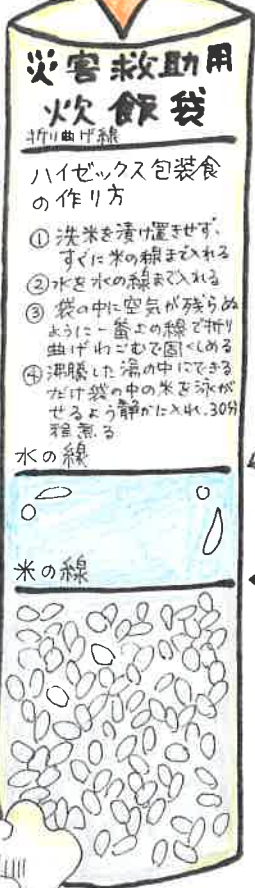 災害救助用
炊飯袋
折り曲げ線
ハイゼックス包装食
の作り方
① 洗米を漬け置きせず、
すぐに米の線まで入れる
②水を水の線まで入れる
③ 袋の中に空気が残らぬ
ように一番上の線で折り
曲げわごむで固くしめる
④沸騰した湯の中にできる
だけ袋の中の米を泳が
せるよう静かに入れ、30分
程煮る
水の線
米の線